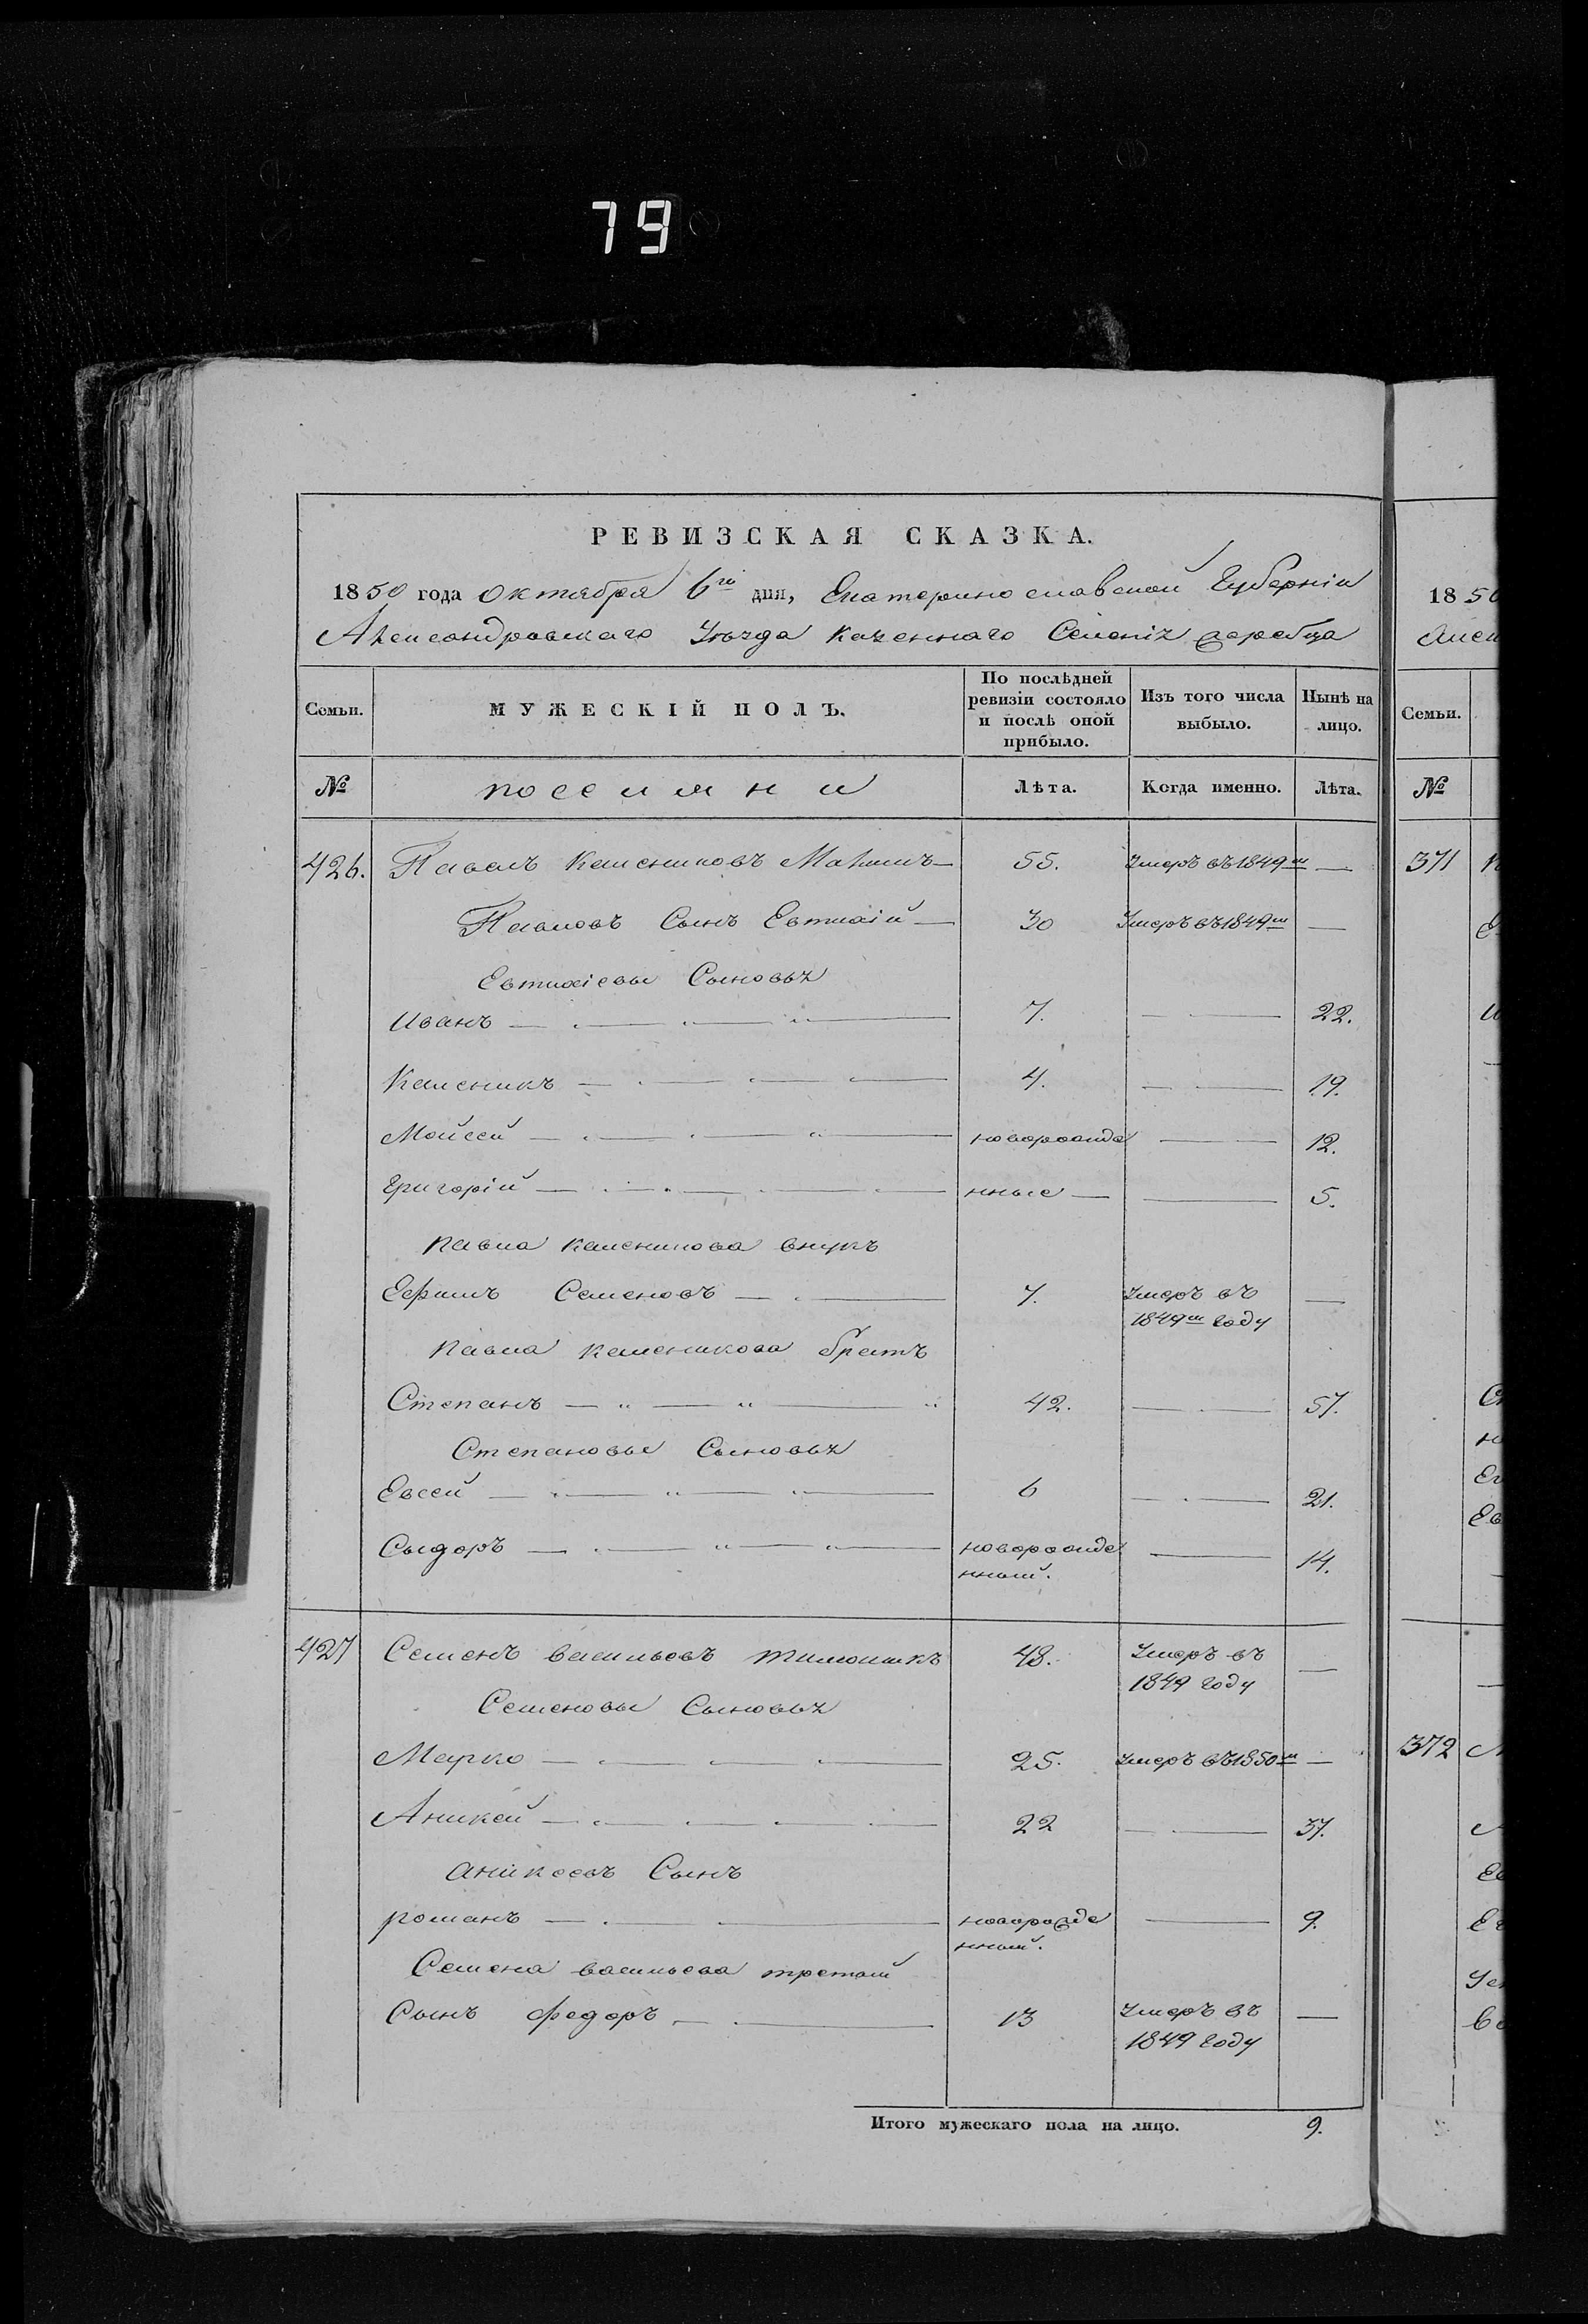 79
РЕВИЗСКАЯ СКАЗКА.
1850 года Октября 6го дня, Екатеринославской Губерніи
Александровскаго Уѣзда Казеннаго Селенія Жеребца
Семьи. МУЖЕСКІЙ ПОЛЪ. По послѣдней ревизіи состояло и послѣ оной прибыло. Изъ того числа выбыло. Нынѣ на лицо.
№ Лѣта. Когда именно. Лѣта.
426. Павелъ Калениковъ 55. Умеръ въ 1849м —
Павловъ Сынъ Евтихій — 30 Умеръ въ 1849м —
Евтихіевы Сыновья
Иванъ — 7. — 22.
Каленикъ — 4. — 19.
Мойсей — новорожде — 12.
Григорій — нные — — 5.
Павла Каленикова внукъ
Ефимъ Семеновъ — 7. Умеръ въ —
1849м году
Павла Каленикова братъ
Степанъ — 42. — 57.
Степановы Сыновья
Евсей — 6 — 21.
Сыдоръ — новорожде — 14.
нный.
427 Семенъ Васильевъ 48. Умеръ въ —
1849 году
Семеновы Сыновья
Марко — 25. Умеръ въ 1850м —
Аникей — 22 — 37.
Аникеевъ Сынъ
Романъ — новорожде — 9.
нный.
Семена Васильева третій
Сынъ Федоръ — 13 Умеръ въ —
1849 году
Итого мужескаго пола на лицо. 9.
1850
Семьи.
№
371
372